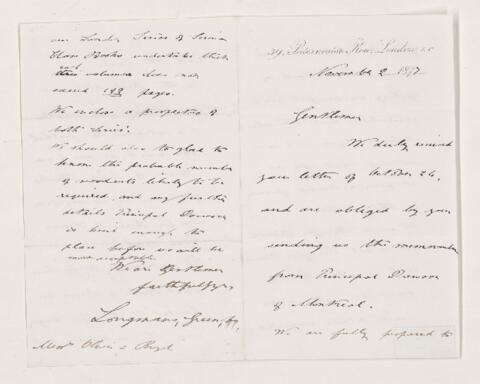 39, Paternoster Row, London, E.C.
November 2 1877
Gentlemen
We duly received
your letter of October 26,
and are obliged by your
sending us the memorandum
from Principal Dawson
of Montreal.
We are fully prepared to
our London Series of Science
Class Books undertakes that
each volume does not
exceed 192 pages.
We enclose a prospectus of
both Series.
We should also be glad to
know the probable number
of woodcuts likely to be
required, and any further
details Principal Dawson
is kind enough to
place before us will be
most acceptable.
We are Gentlemen
faithfully yrs
Longmans, Green, & Co.
Messrs Oliver & Boyd